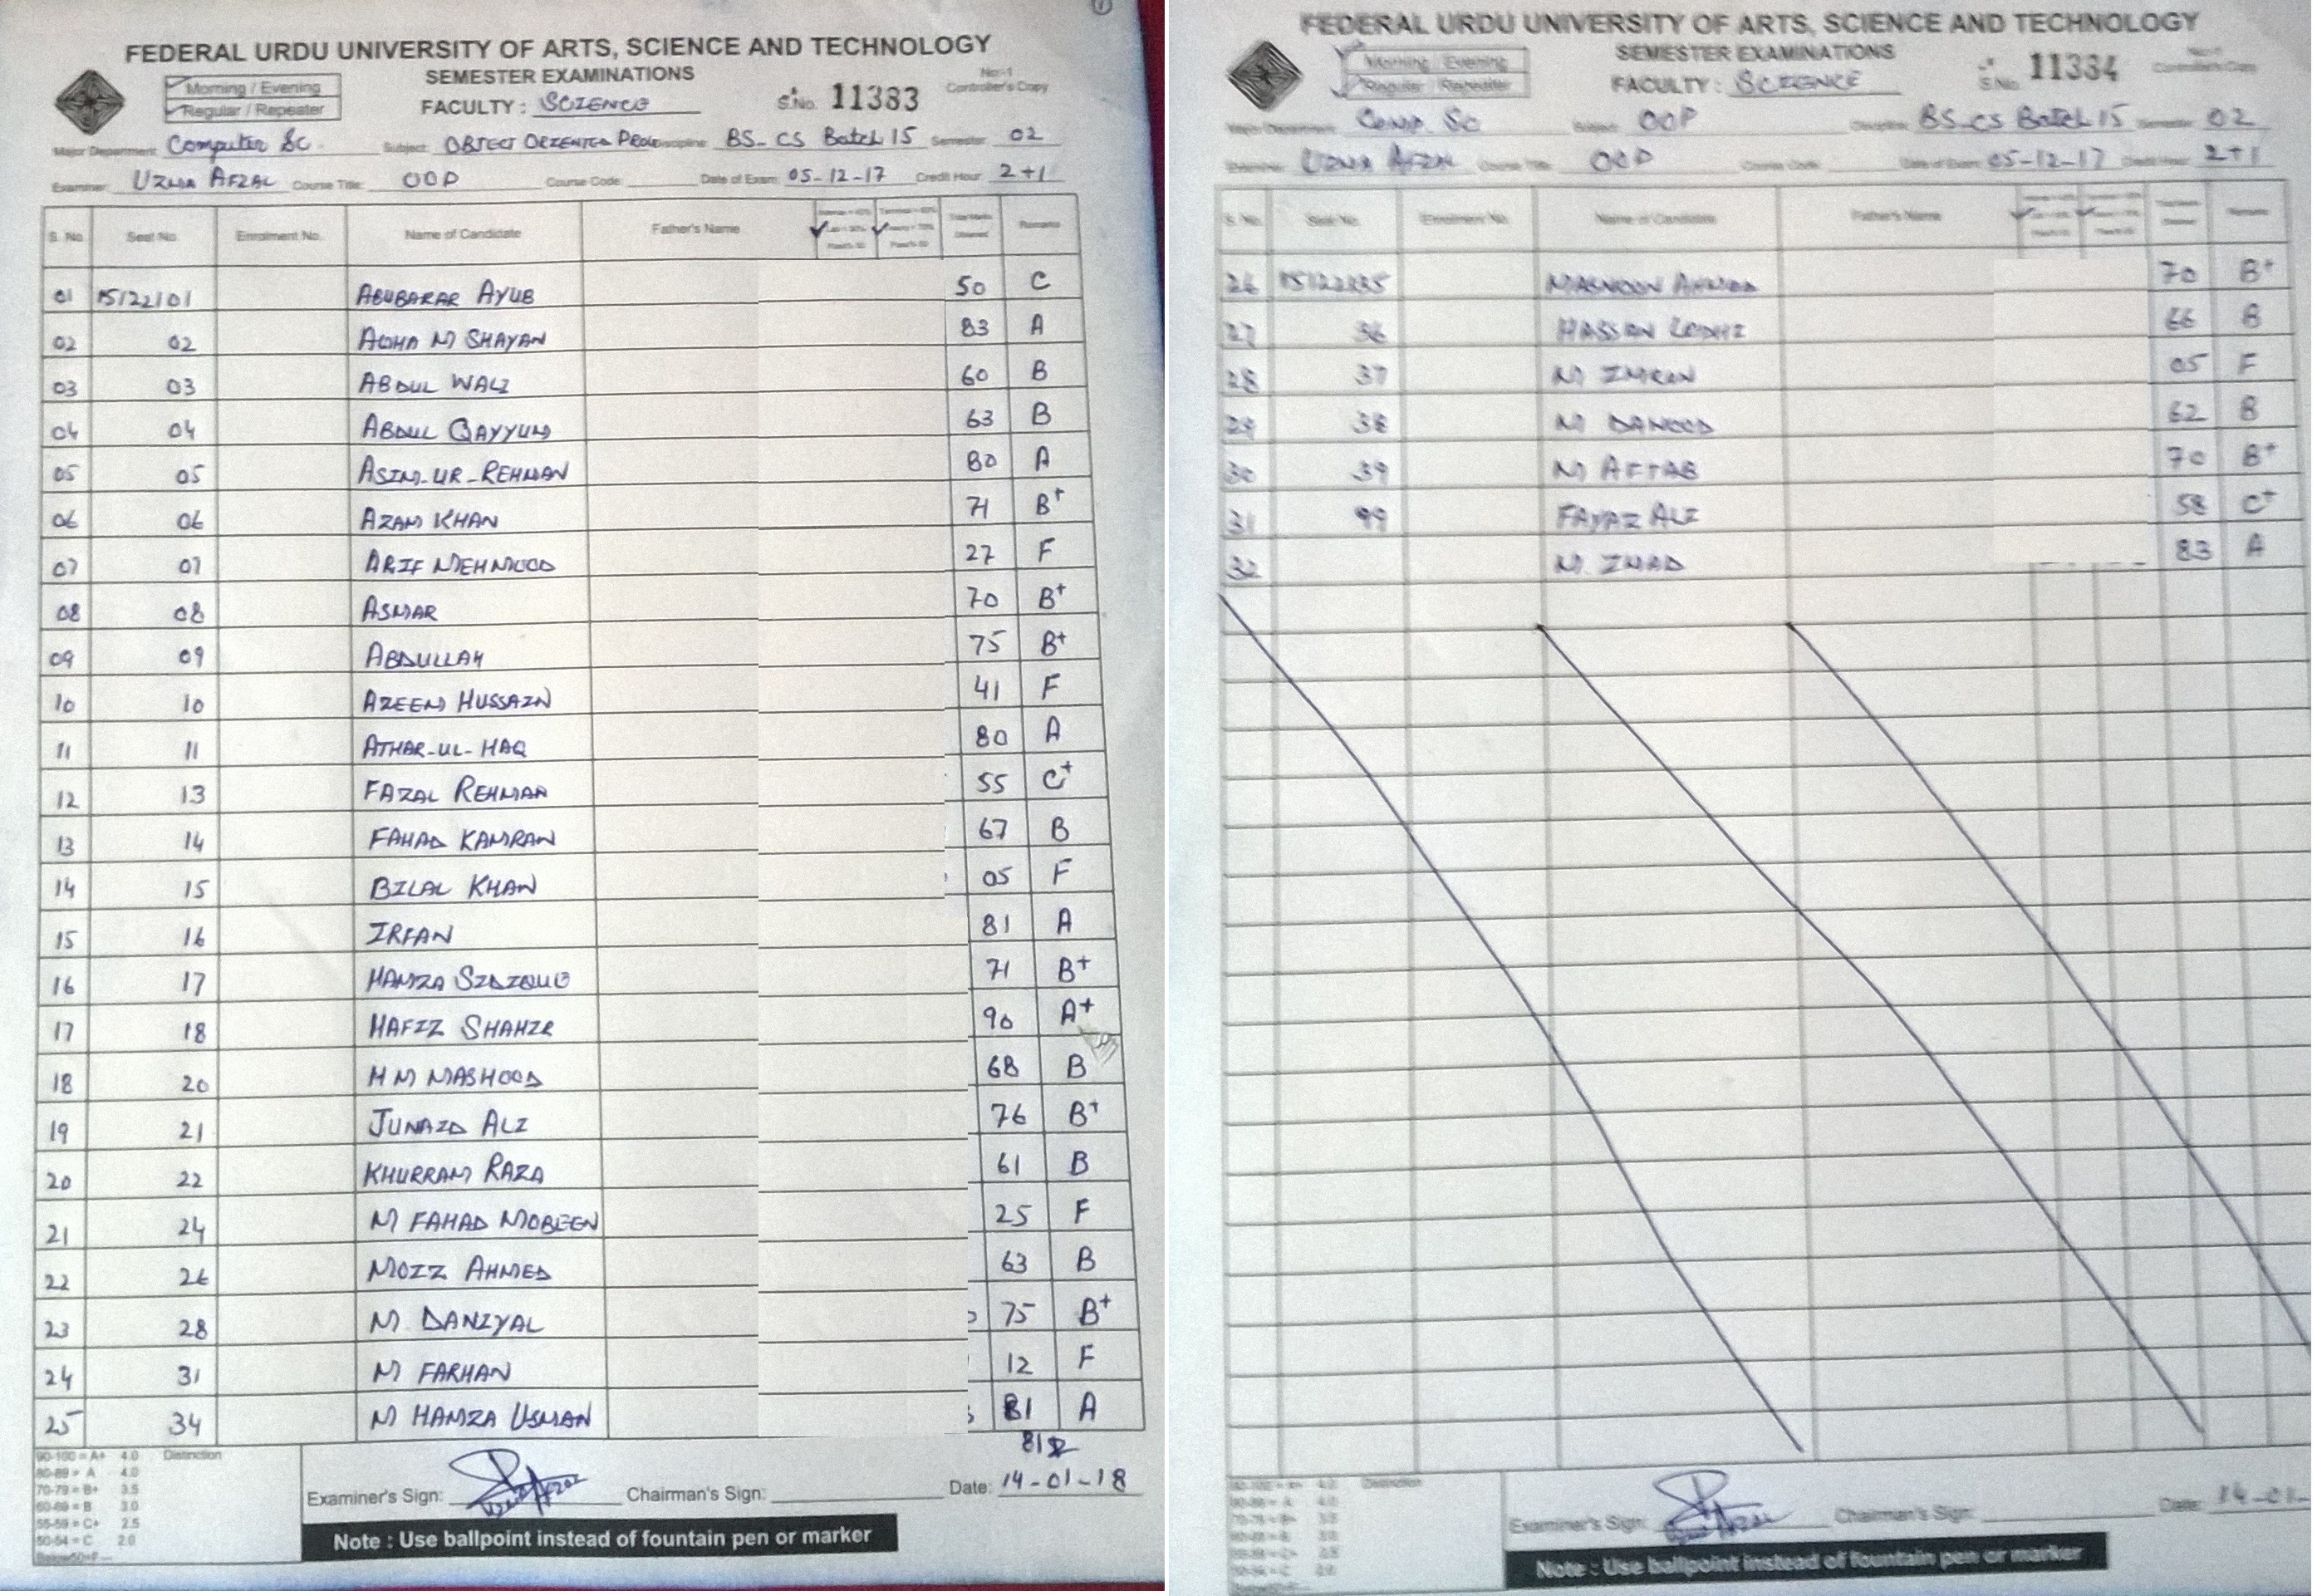 FEDERAL URDU UNIVERSITY OF ARTS, SCIENCE AND TECHNOLOGY
Morning / Evening SEMESTER EXAMINATIONS No:-1
Regular / Repeater FACULTY : SCIENCE S.No. 11383 Controller's Copy
Major Department: Computer Sc. Subject: OBJECT ORIENTED Discipline: BS-CS Batch 15 Semester 02
Examiner: UZMA AFZAL Course Title: OOP Course Code: Date of Exam: 05-12-17 Credit Hour: 2+1
S. No. Seat No. Enrolment No. Name of Candidate Father's Name Total Marks Obtained Remarks
01 15122101 ABUBAKAR AYUB 50 C
02 02 AGHA M SHAYAN 83 A
03 03 ABDUL WALI 60 B
04 04 ABDUL QAYYUM 63 B
05 05 ASIM-UR-REHMAN 80 A
06 06 AZAM KHAN 71 B+
07 07 ARIF MEHMOOD 27 F
08 08 ASMAR 70 B+
09 09 ABDULLAH 75 B+
10 10 AZEEM HUSSAIN 41 F
11 11 ATHAR-UL-HAQ 80 A
12 13 FAZAL REHMAN 55 C+
13 14 FAHAD KAMRAN 67 B
14 15 BILAL KHAN 05 F
15 16 IRFAN 81 A
16 17 HAMZA SIDIQUE 71 B+
17 18 HAFIZ SHAHIR 90 A+
18 20 H M MASHOOD 68 B
19 21 JUNAID ALI 76 B+
20 22 KHURRAM RAZA 61 B
21 24 M FAHAD MOBEEN 25 F
22 26 MOIZ AHMED 63 B
23 28 M. DANIYAL 75 B+
24 31 M FARHAN 12 F
25 34 M HAMZA USMAN 81 A
81
90-100 = A+ 4.0 Distinction
80-89 = A 4.0
70-79 = B+ 3.5
60-69 = B 3.0
55-59 = C+ 2.5
50-54 = C 2.0
Below50=F
Examiner's Sign: Chairman's Sign: Date: 14-01-18
Note : Use ballpoint instead of fountain pen or marker
FEDERAL URDU UNIVERSITY OF ARTS, SCIENCE AND TECHNOLOGY
Morning / Evening SEMESTER EXAMINATIONS No:-1
Regular / Repeater FACULTY : SCIENCE S.No. 11384 Controller's Copy
Major Department: Comp. Sc Subject: OOP Discipline: BS-CS Batch 15 Semester 02
Examiner: UZMA AFZAL Course Title: OOP Course Code: Date of Exam: 05-12-17 Credit Hour: 2+1
S. No. Seat No. Enrolment No. Name of Candidate Father's Name Remarks
26 MASNOON AHMED 70 B+
27 36 HASSAN LODHI 66 B
28 37 M IMRAN 05 F
29 38 M DAWOOD 62 B
30 39 M AFTAB 70 B+
31 99 FAYAZ ALI 58 C+
32 M. IMAD 83 A
Examiner's Sign: Chairman's Sign: Date: 14-01-
Note : Use ballpoint instead of fountain pen or marker